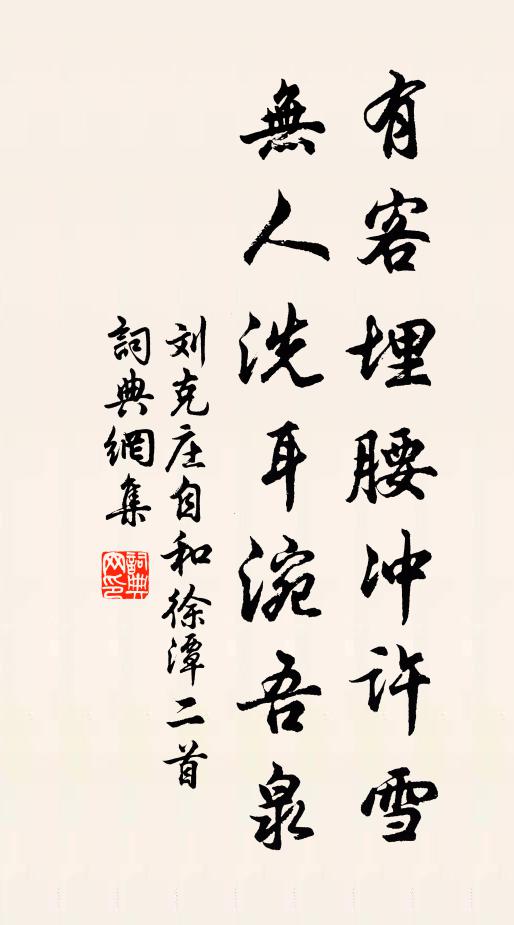 有客埋腰冲许雪
無人洗耳涴吾泉
刘克庄自和徐潭二首
詞典網集
詞典網印